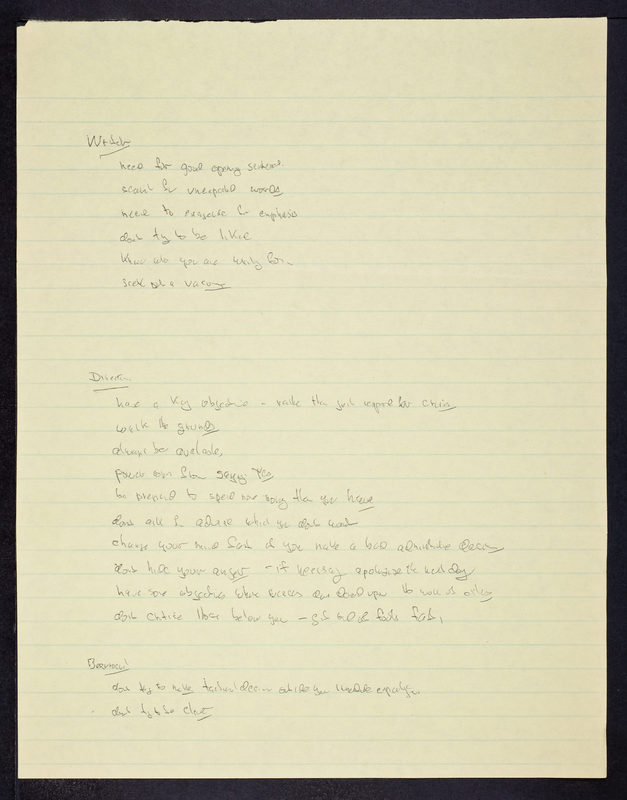 need for good opening sentences.
search for unexpected words
need to exaggerate for emphasis
dont try to be liked
know who you are writing for.
seek out a
Director
have a key objective - rather than just respond to
walk the grounds
always be available.
power comes from saying yes
be prepared to spend more money than you have
dont ask for advice which you dont want
change your mind fast if you make a bad administrative decision
dont hide your anger - if necessary apologize the next day
have some objectives whose success dont depend upon the work of others
dont criticize those below you - get rid of fast.
Bureaucrat
dont try to make technical decisions outside your immediate expertise.
dont try to be clever